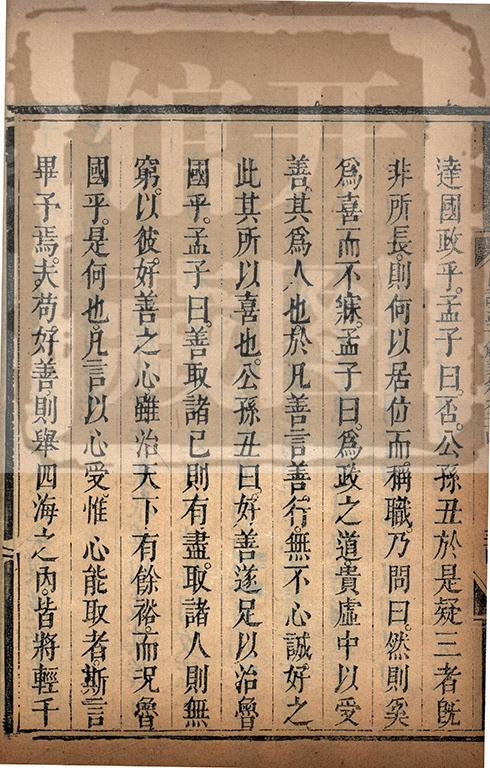 達國政乎。孟子曰。否。公孫丑於是疑三者旣
非所長。則何以居位而稱職。乃問曰。然則奚
爲喜而不寐。孟子曰。爲政之道。貴虛中以受
善。其爲人也。於凡善言善行。無不心誠好之
此其所以喜也。公孫丑曰。好善遂足以治魯
國乎。孟子曰。善取諸已則有盡。取諸人則無
窮。以彼好善之心。雖治天下有餘裕。而况魯
國乎。是何也。凡言以心受。惟心能取者。斯言
畢予焉。夫苟好善。則舉四海之內。皆將輕千